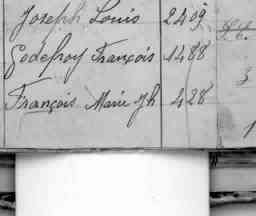 Joseph Louis 2409
Godefroy François 1488
François Marie Jh 428
3
1